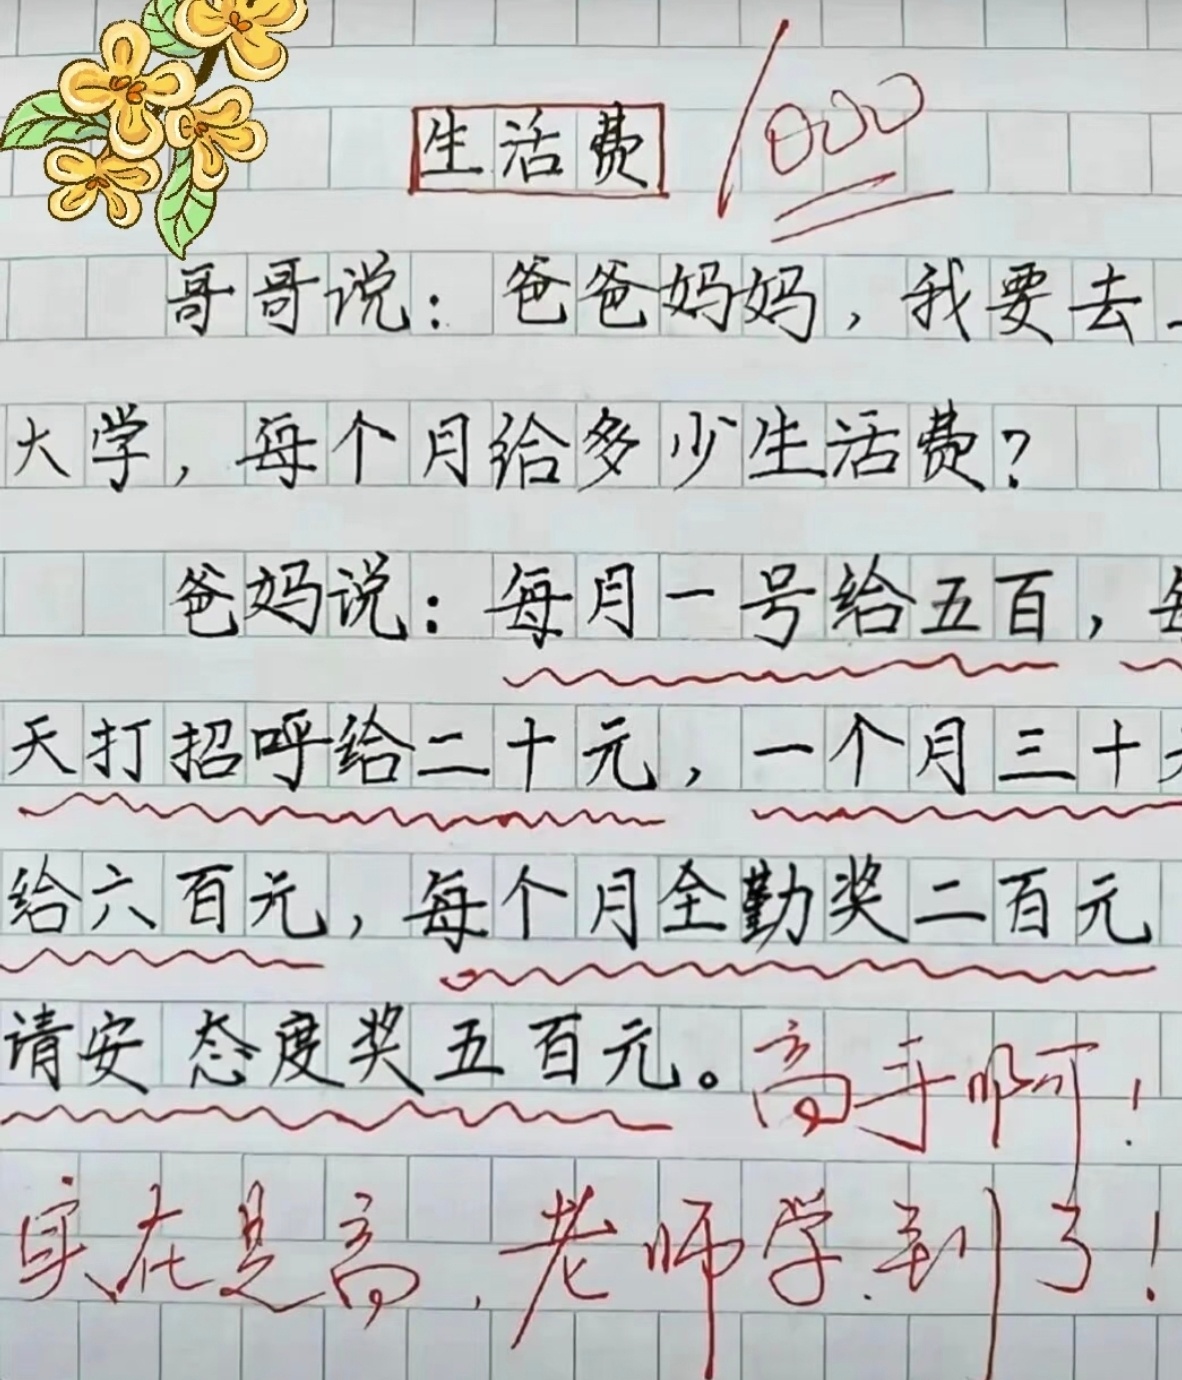 生活费 1000
哥哥说：爸爸妈妈，我要去
大学，每个月给多少生活费？
爸妈说：每月一号给五百，
天打招呼给二十元，一个月三十
给六百元，每个月全勤奖二百元
请安 态度奖五百元。高手啊！
实在是高，老师学到了！